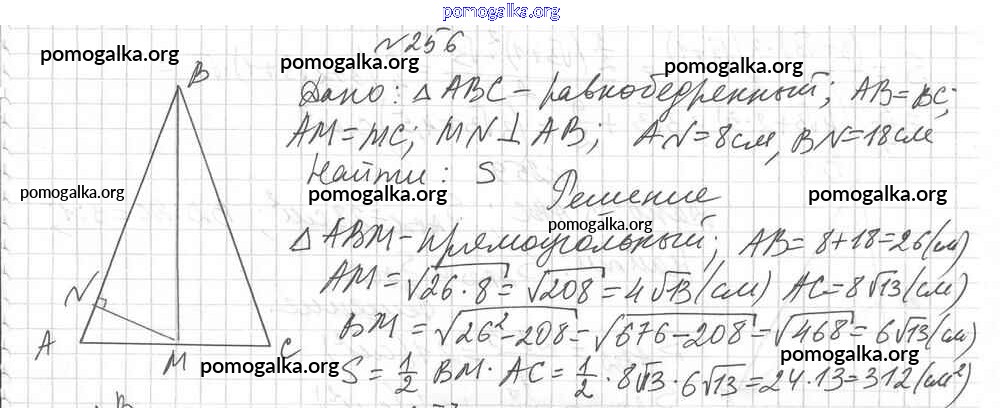 pomogalka.org
№256
pomogalka.org pomogalka.org pomogalka.org
B
Дано: △ ABC – равнобедренный; AB = BC;
AM = MC; MN ⊥ AB; AN = 8 см, BN = 18 см
Найти: S
pomogalka.org pomogalka.org pomogalka.org
Решение
pomogalka.org
△ ABM – прямоугольный; AB = 8+18 = 26 (см)
AM = √26·8 = √208 = 4√13 (см) AC = 8√13 (см)
N
BM = √26²-208 = √676-208 = √468 = 6√13 (см)
A M C
pomogalka.org pomogalka.org pomogalka.org
S = 1/2 BM · AC = 1/2 · 8√13 · 6√13 = 24·13 = 312 (см²)
B